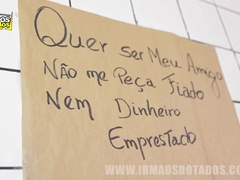 Quer ser Meu Amigo
Não me Peça Fiado
Nem Dinheiro
Emprestado
WWW.IRMAOSDOTADOS.COM